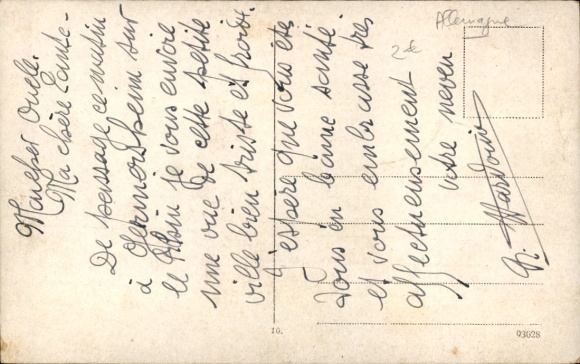 Mon cher Oncle.
Ma chère Tante.
De passage ce matin
à Germersheim sur
le Rhin je vous envoie
une vue de cette petite
ville bien triste et froide.
J'espère que vous êtes
tous en bonne santé.
et vous embrasse très
affectueusement
votre neveu
Allemagne
2 de
10.
93628